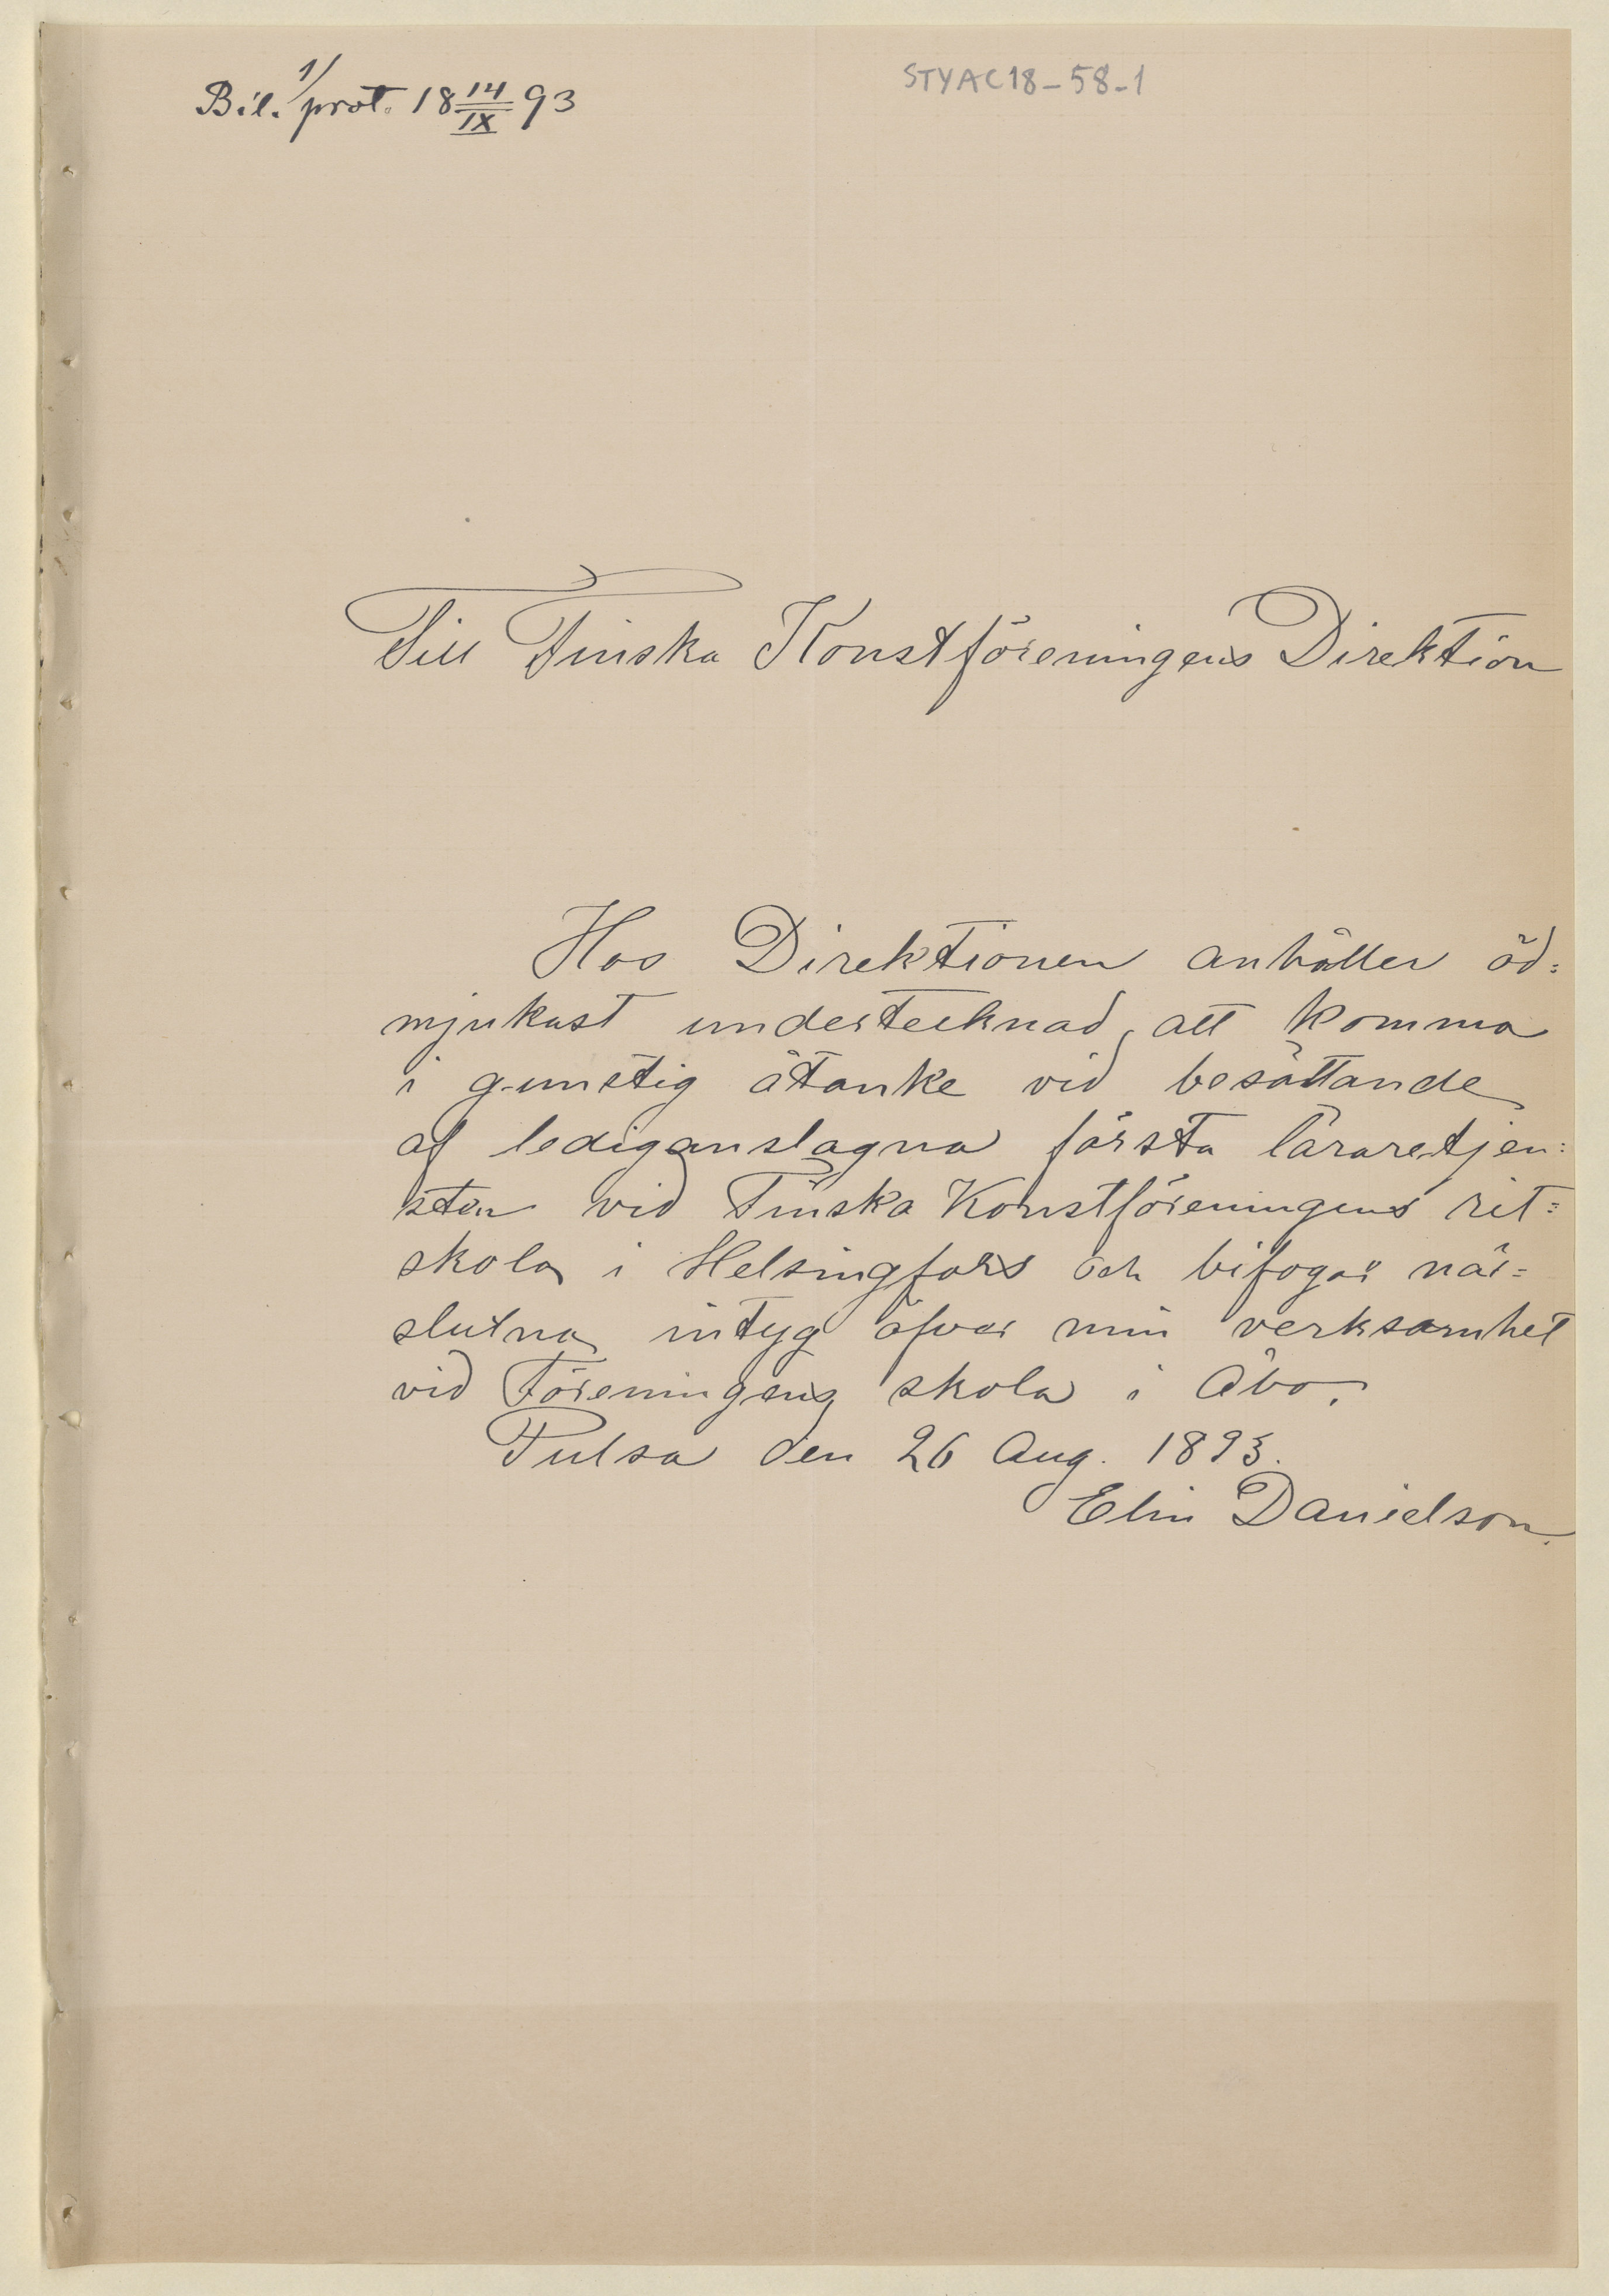 Bil. 1/ prot. 18 14/IX 93
STYAC18-58-1
Till Finska Konstföreningens Direktion
Hos Direktionen anhåller öd=
mjukast undertecknad, att komma
i gunstig åtanke vid besättande
af lediganslagna första läraretjen=
sten vid Finska Konstföreningens rit=
skola i Helsingfors och bifogar när=
slutna intyg öfver min verksamhet
vid Föreningens skola i Åbo.
Pulsa den 26 Aug. 1893.
Elin Danielson.